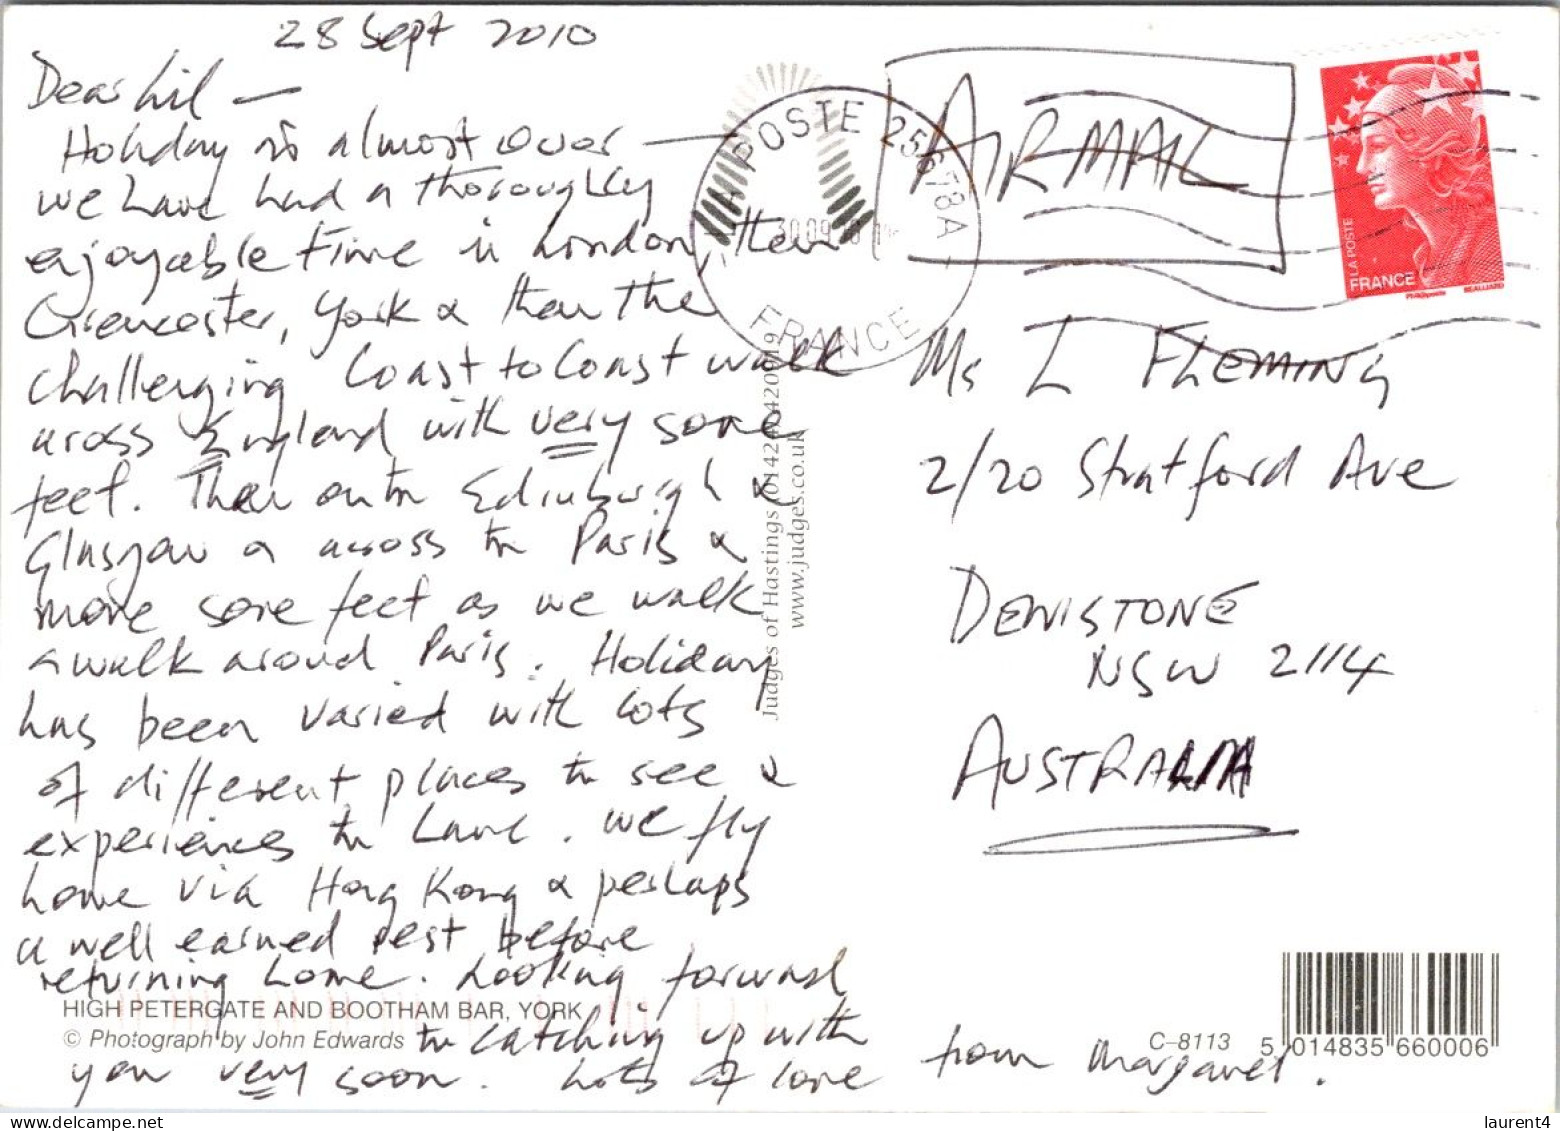 28 Sept 2010
Dear Lil —
Holiday is almost over —
we have had a thoroughly
enjoyable time in London, then
Cirencester, York & then the
challenging Coast to Coast walk
across England with very sore
feet. Then on to Edinburgh &
Glasgow & across to Paris &
more sore feet as we walk
& walk around Paris. Holiday
has been varied with lots
of different places to see &
experiences to have. We fly
home via Hong Kong & perhaps
a well earned rest before
returning home. Looking forward
to catching up with
you very soon. Lots of love from Margaret.
HIGH PETERGATE AND BOOTHAM BAR, YORK
© Photograph by John Edwards
Judges of Hastings (01424) 420919
www.judges.co.uk
LA POSTE 25678A
30.09.10
FRANCE
AIRMAIL
LA POSTE
FRANCE
Ms L FLEMING
2/20 Stratford Ave
DENISTONE
NSW 2114
AUSTRALIA
C-8113
5 014835 660006
laurent4